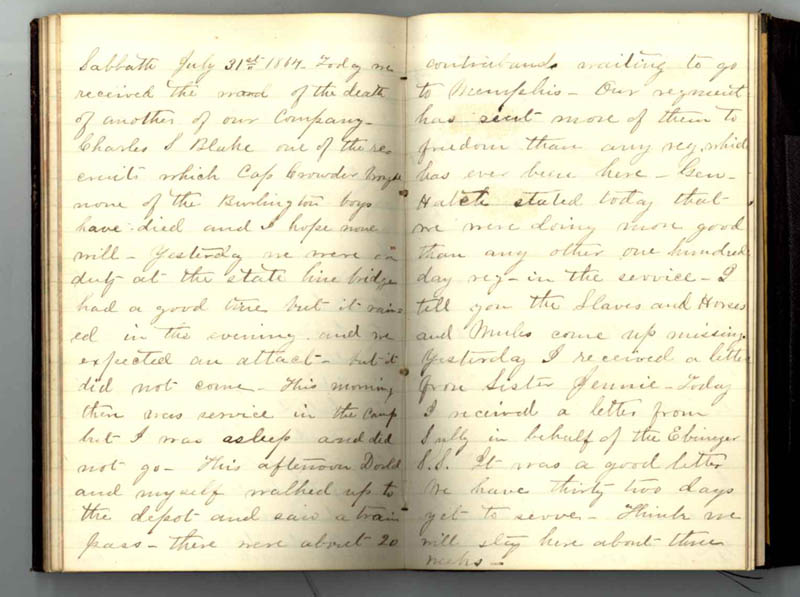 Sabbath July 31st 1864. Today we
received the word of the death
of another of our Company-
Charles S Blake one of the re-
cruits which Cap Crowder brought
none of the Burlington boys
have died and I hope none
will - Yesterday we were on
duty at the state line bridge
had a good time but it rain=
ed in the evening and we
expected an attact - but it
did not come - This morning
there was service in the camp
but I was asleep and did
not go - This afternoon
and myself walked up to
the depot and saw a train
pass - there were about 20
contrabands waiting to go
to Memphis - Our regment
has sent more of them to
freedom than any reg. which
has ever been here - Gen-
Hatch stated today that
we were doing more good
than any other one hundred
day reg - in the service - I
tell you the Slaves and Horses
and Mules come up missing
Yesterday I received a letter
from Sister Jennie - Today
I received a letter from
in behalf of the Ebinezer
S.S. It was a good letter
We have thirty two days
yet to serve - Think we
will stay here about three
weeks -